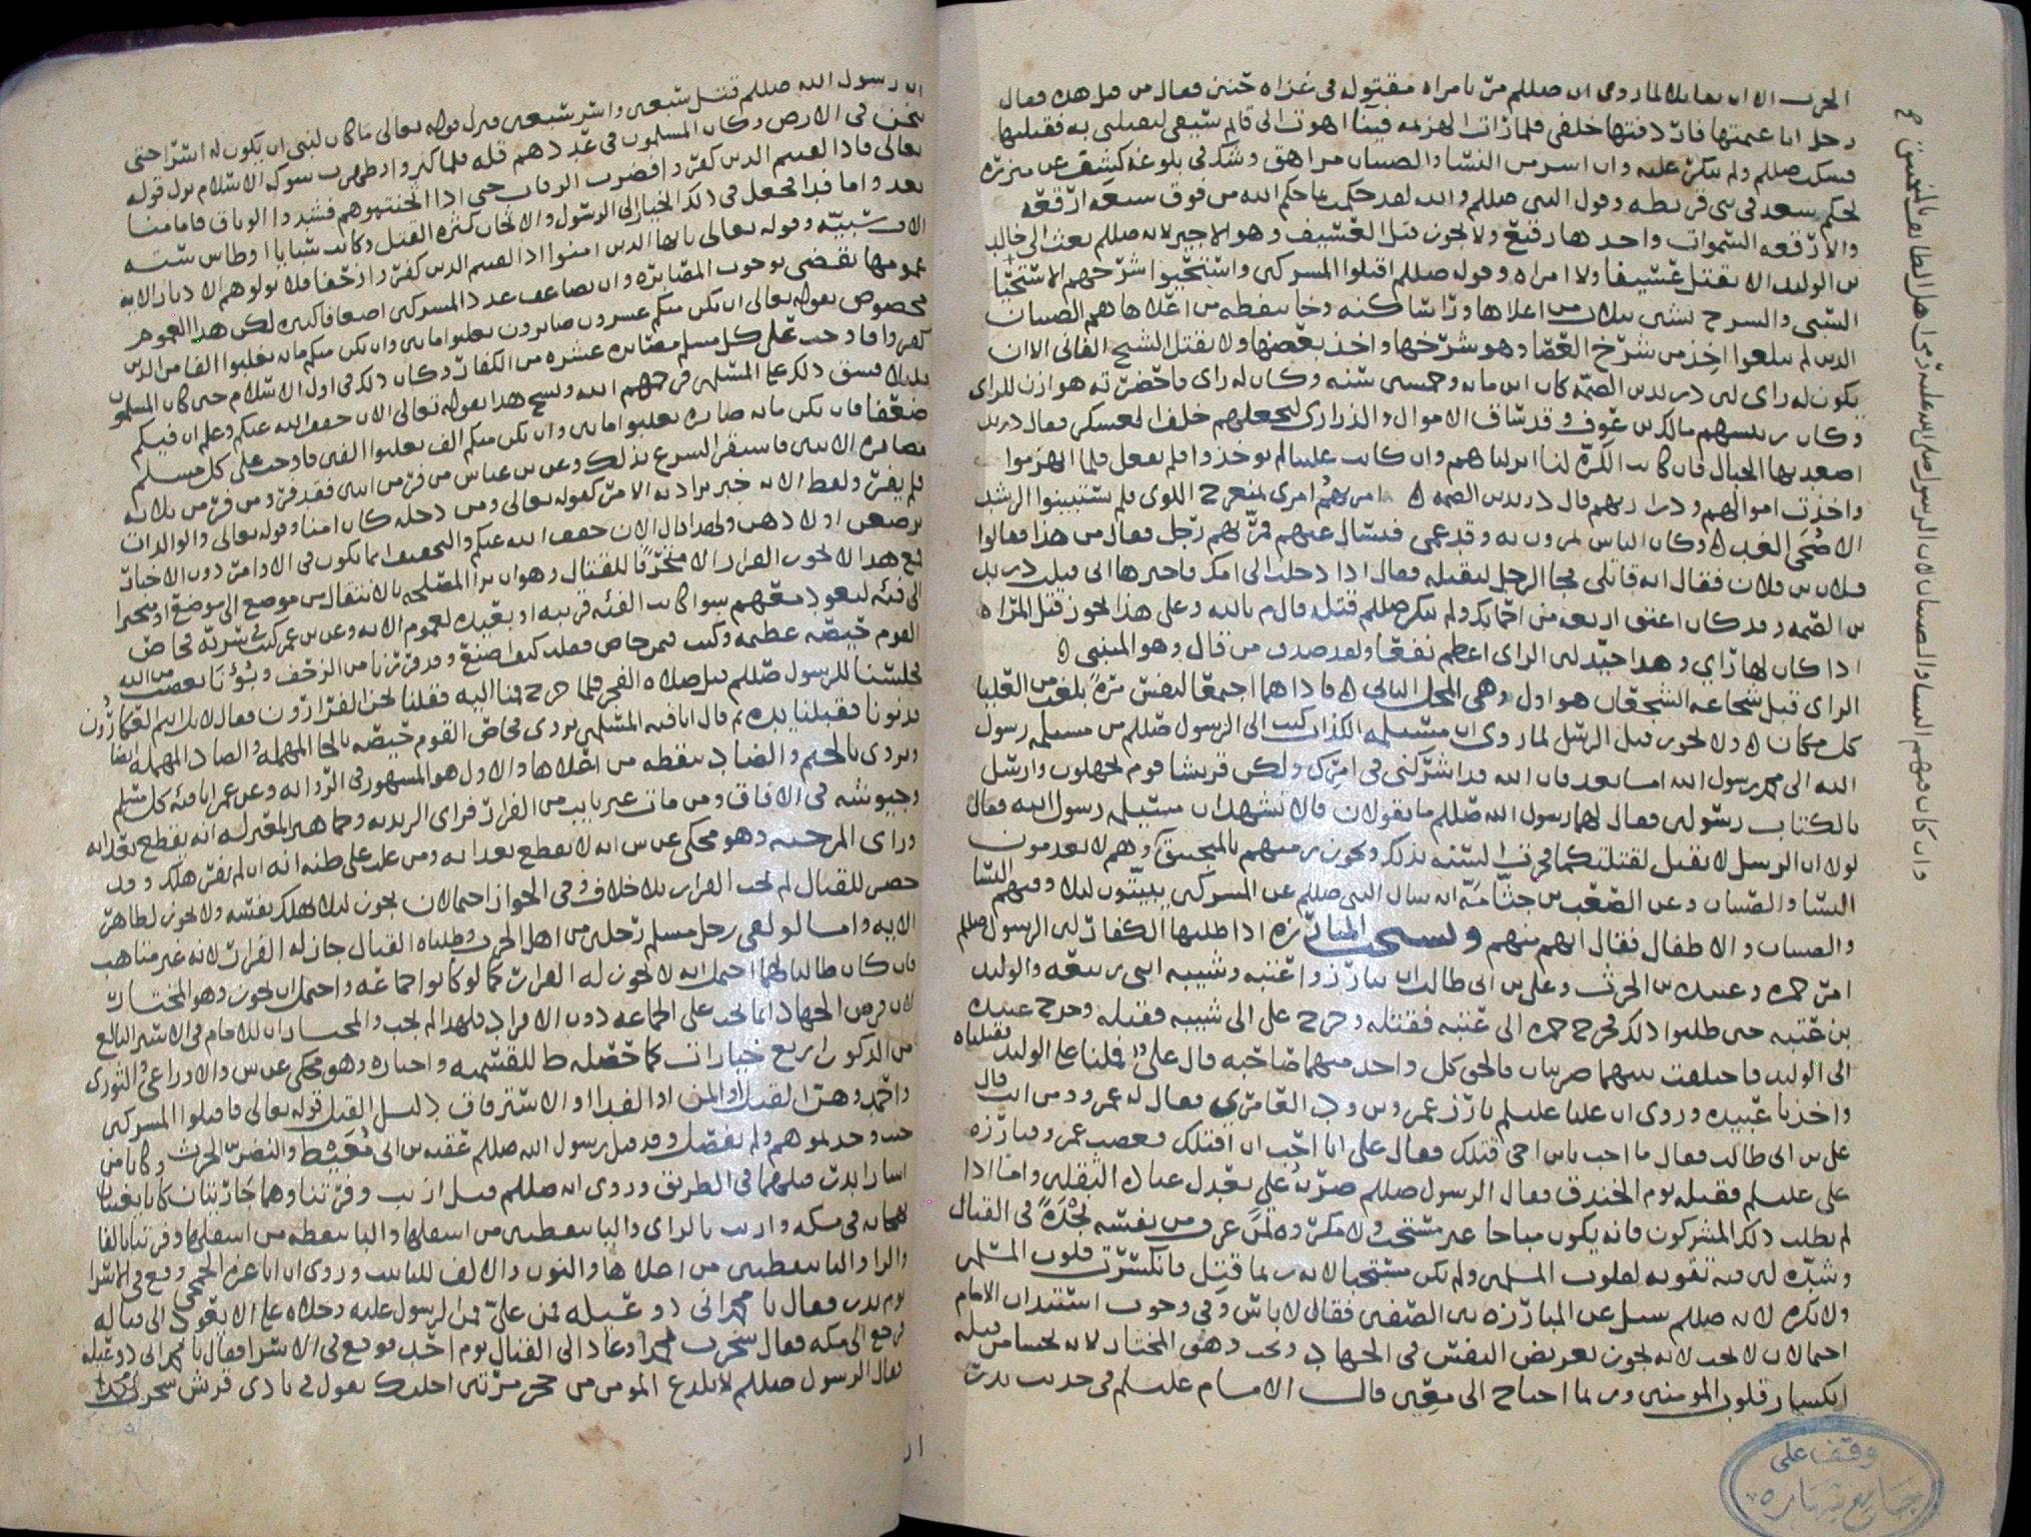 الحرب الا ان يقاتلا لما روى ان صللم مر بامراه مقتوله في غزاه حنين فقال من قتل هذه فقال
رجل انا غنمتها فاردفتها خلفي فلما رات الهزيمه فينا اهوت الى قايم سيفي لتقتلني به فقتلتها
فسكت صللم ولم ينكر عليه وان اسر من النسا والصبيان مراهق وشك في بلوغه كشف عن مئزره
لحكم سعد في بني قريظه وقول النبي صللم والله لقد حكمت بما حكم الله من فوق سبعه ارقعه
والارقعه السموات واحدها رقيع ولا يجوز قتل العسيف وهو الاجير لانه صللم بعث الى خالد
بن الوليد الا يقتل عسيفا ولا امراه وقوله صللم اقتلوا المشركين واستحيوا شرخهم الاستحيا
السبي والشرخ بشين بثلاث من اعلاها ورا ساكنه وخا بنقطه من اعلاها هم الصبيان
الذين لم يبلغوا اخذ من شرخ العصا وهو شرخها واخذ بعضها ولا يقتل الشيخ الفاني الا ان
يكون له راي لان دريد بن الصمه كان ابن مايه وخمسين سنه وكان له راي فاحضرته هوازن للراي
وكان رئيسهم مالك بن عوف وقد ساق الاموال والذراري ليجعلهم خلف العسكر فقال دريد
اصعد بها الجبال فان كانت الكره لنا انزلناهم وان كانت علينا لم يوخذوا فلم يفعل فلما انهزموا
واخذت اموالهم وذراريهم قال دريد بن الصمه ه امرتهم امري بمنعرج اللوى فلم يستبينوا الرشد
الا ضحى الغد ه وكان الناس يمرون به وقد عمي فيسال عنهم فمر بهم رجل فقال من هذا فقالوا
فلان بن فلان فقال انه قاتلي فجا الرجل ليقتله فقال اذا دخلت الى امك فاخبرها اني قتلت دريد
بن الصمه وقد كان اعتق اربعه من امهاتك ولم ينكر صللم قتله قال م بالله وعلى هذا يجوز قتل المراه
اذا كان لها راي وهذا جيد لان الراي اعظم نفعا ولقد صدق من قال وهو المتنبي ه
الراي قبل شجاعه الشجعان هو اول وهي المحل الثاني ه فاذا هما اجتمعا لنفس مره بلغت من العليا
كل مكان ه ولا يجوز قتل الرسل لما روي ان مسيلمه الكذاب كتب الى الرسول صللم من مسيلمه رسول
الله الى محمد رسول الله اما بعد فان الله قد اشركني في امرك ولكن قريشا قوم يجهلون وارسل
بالكتاب رسولين فقال لهما رسول الله صللم ما تقولان قالا نشهد ان مسيلمه رسول الله فقال
لولا ان الرسل لا تقتل لقتلتكما فجرت السنه بذلك ويجوز رميهم بالمنجنيق وهم لا يعدمون
النسا والصبيان وعن الصعب بن جثامه انه سال النبي صللم عن المشركين يبيتون ليلا وفيهم النسا
والصبيان والاطفال فقال انهم منهم ويستحب المبارزه اذا طلبها الكفار لان الرسول صللم
امر حمزه وعبيده بن الحرث وعلي بن ابي طالب ان يبارزوا عتبه وشيبه ابني ربيعه والوليد
بن عتبه حين طلبوا ذلك فخرج حمزه الى عتبه فقتله وخرج علي الى شيبه فقتله وخرج عبيده
الى الوليد فاختلفت بينهما ضربتان فاثخن كل واحد منهما صاحبه قال علي فملنا على الوليد فقتلناه
واخذنا عبيده وروي ان عليا عليلم بارز عمرو بن ود العامري فقال له عمرو ومن انت قال
علي بن ابي طالب فقال ما احب يا بن اخي قتلك فقال علي انا احب ان اقتلك فغضب عمرو فبارزه
علي عليلم فقتله يوم الخندق فقال الرسول صللم ضربه علي تعدل عباده الثقلين واما اذا
لم يطلب ذلك المشركون فانه يكون مباحا غير مستحب ولا مكروه لمن عرف من نفسه نجده في القتال
وشده لان فيه تقويه لقلوب المسلمين ولم يكن مستحبا لانه ربما قتل فانكسرت قلوب المسلمين
ولا يكره لانه صللم سئل عن المبارزه بين الصفين فقال لا باس وفي وجوب استئذان الامام
احتمالان لا يجب لانه يجوز تعريض النفس في الجهاد ويجب وهو المختار لانه يحسا من قتله
انكسار قلوب المومنين وربما احتاج الى معين قال الامام عليلم في حديث بدر
وان كان فيهم النسا والصبيان لان الرسول صلى الله عليه رمى اهل الطائف بالمنجنيق
وقف على
جامع شهاره
ان رسول الله صللم قتل سبعين واسر سبعين فنزل قوله تعالى ما كان لنبي ان يكون له اسرا حتى
يثخن في الارض وكان المسلمون في عددهم قله فلما كثروا وظهرت شوكه الاسلام نزل قوله
تعالى فاذا لقيتم الذين كفروا فضرب الرقاب حتى اذا اثخنتموهم فشدوا الوثاق فاما منا
بعد واما فدا فجعل في ذلك الخيار الى الرسول والاثخان كثره القتل وكانت سبايا اوطاس ستة
الاف سبيه وقوله تعالى يا ايها الذين امنوا اذا لقيتم الذين كفروا زحفا فلا تولوهم الادبار الايه
عمومها يقتضي بوجوب المصابره وان يضاعف عدد المشركين اضعافا كثيره لكن هذا العموم
مخصوص بقوله تعالى ان يكن منكم عشرون صابرون يغلبوا مايتين وان يكن منكم مايه يغلبوا الفا من الذين
كفروا فاوجب على كل مسلم مصابره عشره من الكفار وكان ذلك في اول الاسلام حين كان المسلمون
قليلا فشق ذلك على المسلمين فرحمهم الله ونسخ هذا بقوله تعالى الان خفف الله عنكم وعلم ان فيكم
ضعفا فان يكن مايه صابره يغلبوا مايتين وان يكن منكم الف يغلبوا الفين فاوجب على كل مسلم
مصابره الاثنين فاستقر الشرع بذلك وعن بن عباس من فر من اثنين فقد فر ومن فر من ثلاثه
فلم يفر ولفظ الايه خبر يراد به الامر كقوله تعالى ومن دخله كان امنا وقوله تعالى والوالدات
يرضعن اولادهن ولهذا قال الان خفف الله عنكم والتخفيف انما يكون في الاوامر دون الاخبار
فمع هذا لا يجوز الفرار الا متحرفا للقتال وهو ان يرا المصلحه بالانتقال من موضع الى موضع او متحيزا
الى فئه ليعود معهم سوا كانت الفئه قريبه او بعيده لعموم الايه وعن بن عمر كنت في سريه فحاص
القوم حيصه عظيمه وكنت فيمن حاص فقلت كيف اصنع وقد فررنا من الزحف وبؤنا بغضب من الله
فجلسنا للرسول صللم قبل صلاه الفجر فلما خرج قمنا اليه فقلنا نحن الفرارون فقال لا بل انتم العكارون
فدنونا فقبلنا يده ثم قال انا فئه المسلمين يروى فحاص القوم حيصه بالحا المهمله والصاد المهمله ايضا
ويروى بالجيم والضاد بنقطه من اعلاها والاول هو المشهور في الروايه وعن عمر انا فئه كل مسلم
وجيوشه في الافاق ومن مات غير تايب من الفرار فراي الزيديه وجماهير المعتزله انه يقطع بعذابه
وراي المرجئه وهو محكي عن س انه لا يقطع بعذابه ومن غلب على ظنه انه ان لم يفر هلك وقد
حضر للقتال لم يجب الفرار بلا خلاف وفي الجواز احتمالان يجوز ليلا يهلك نفسه ولا يجوز لظاهر
الايه واما لو لقي رجل مسلم رجلين من اهل الحرب وطلباه القتال جاز له الفرار لانه غير متاهب
فان كان طالبا لهما احتمل انه لا يجوز له الفرار كما لو كانوا جماعه واحتمل ان يجوز وهو المختار
لان فرض الجهاد انما يجب على الجماعه دون الافراد فلهذا لم يجب والمختار ان للامام في الاسير البالغ
من الذكور اربع خيارات كما حصله ط للقسميه واختاره وهو محكي عن س والاوزاعي والثوري
واحمد وهي القتل او المن او الفدا او الاسترقاق دليل القتل قوله تعالى فاقتلوا المشركين
حيث وجدتموهم ولم يفصل وقد قتل رسول الله صللم عقبه بن ابي معيط والنضر بن الحرث وكانا من
اسارا بدر قتلهما في الطريق وروي انه صللم قتل ارنب وفرتنا وهما جاريتان كانا يغنيان
بهجائه في مكه وارنب بالراي والبا بنقطتين من اسفلها والبا بنقطه من اسفلها وفرتنا بالفا
والرا والتا بنقطتين من اعلاها والنون والالف للتانيث وروي ان ابا عزه الجمحي وقع في الاسرا
يوم بدر فقال يا محمد اني ذو عيله فمن علي فمن الرسول عليه وخلاه على الا يعود الى قتاله
فرجع الى مكه فقال سخرت بمحمد وعاد الى القتال يوم احد فوقع في الاسرا فقال يا محمد اني ذو عيله
فقال الرسول صللم لا يلدغ المومن من جحر مرتين اخليك تقول في نادي قريش سخرت بمحمد